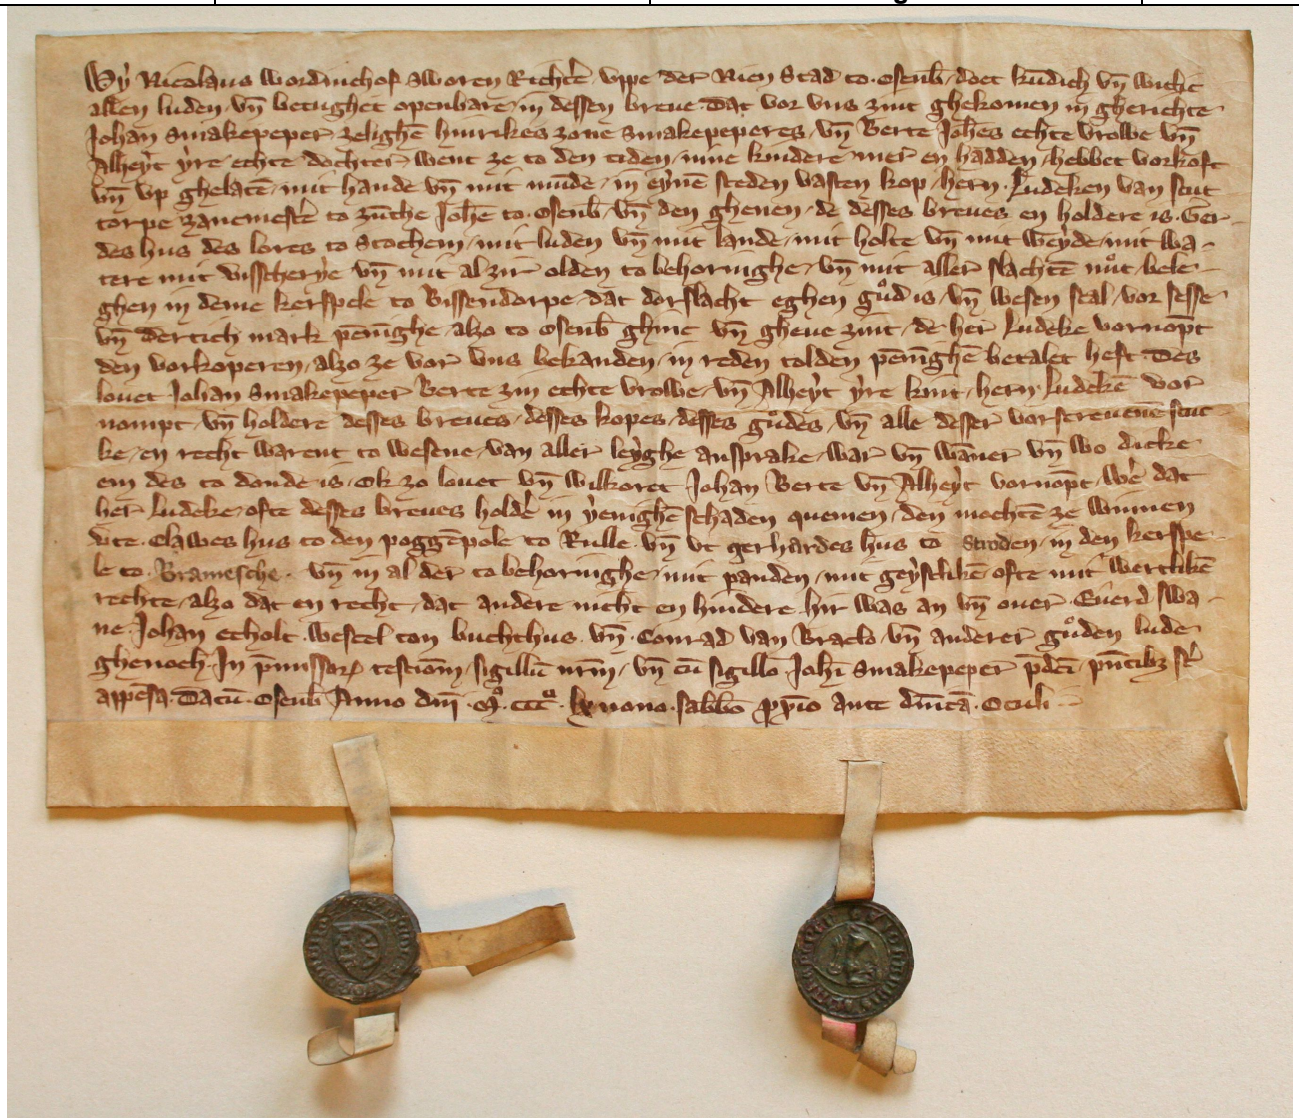 Wẏ Nicolaus Wordinchof sworen Richtē vppe der Nien Stad to Osenb̄ doet kūdich vn̄ wickē
allen luden vn̄ betughet openbare in dessen breue Dat vor vns zint ghekomen in gherichte
Johan Smakepeper zelighē hinrikes zone Smakepeperes vn̄ Berte Joh̄es echte vrowe vn̄
Alheẏt ẏre echte dochter went ze to den tiden nine kindere mer en hadden hebbet vorkoft
vn̄ vp ghelatē mit hande vn̄ mit mūde in eẏnē steden vasten kop hern Ludeken van sut
torpe zancmestē to zūthe Joh̄e to Osenb̄ vn̄ den ghenen de desses breues en holdere is Ger
des hus des lores to Stochem mit luden vn̄ mit lande mit holte vn̄ mit weẏde mit wa
tere mit visscherẏe vn̄ mit al zir olden to behoringhe vn̄ mit aller slachtē nůt bele
ghen in deme kerspele to Bissendorpe dat dorslacht eghen gůd is vn̄ wesen scal vor sesse
vn̄ dertich mark pēnīghe alzo to Osenb̄ ghinc vn̄ gheue zint de her Ludeke vornōpt
den vorkoperen alzo ze vor vns bekanden in reden tolden pēnīghē betalet heft Des
louet Johan Smakepeper Berte zin echte vrowe vn̄ Alheẏt ẏre kint hern Ludekē vor
nompt vn̄ holdere desses breues desses kopes desses gůdes vn̄ alle desser vorscreuenē stuc
ke en recht warent to wesene van aller leẏghe ansprake war vn̄ waner vn̄ wo dicke
em des to donde is Ok zo louet vn̄ wilkoret Johan Berte vn̄ Alheẏt vornōpt wē dat
her Ludeke ofte desses breues holdē in ẏenighē schaden quemen den mochtē ze winnen
vte Clawes hus to den poggēpole to Rulle vn̄ vt gerhardes hus to Stroden in den kerspe
le to Bramesche vn̄ in al der to behoringhe mit panden mit geẏstlikē ofte mit wertlikē
rechte alzo dat en recht dat andere nicht en hindere hir was an vn̄ ouer Euerd swa
ne Johan echolt Wescel ton buchthus vn̄ Conrad van Braclo vn̄ anderer gůden lude
ghenoch In p̄missoꝝ testiōm sigillū nr̄m vn̄ cū sigillo Joh̄i Smakepeper p̄dc̄i p̄ntibꝫ sc̄
appēsa Datū Osenb̄ Anno dn̄i Mͦ CCCͦ lx nono sabb̄o p̱pīo ante dn̄icā Oculi